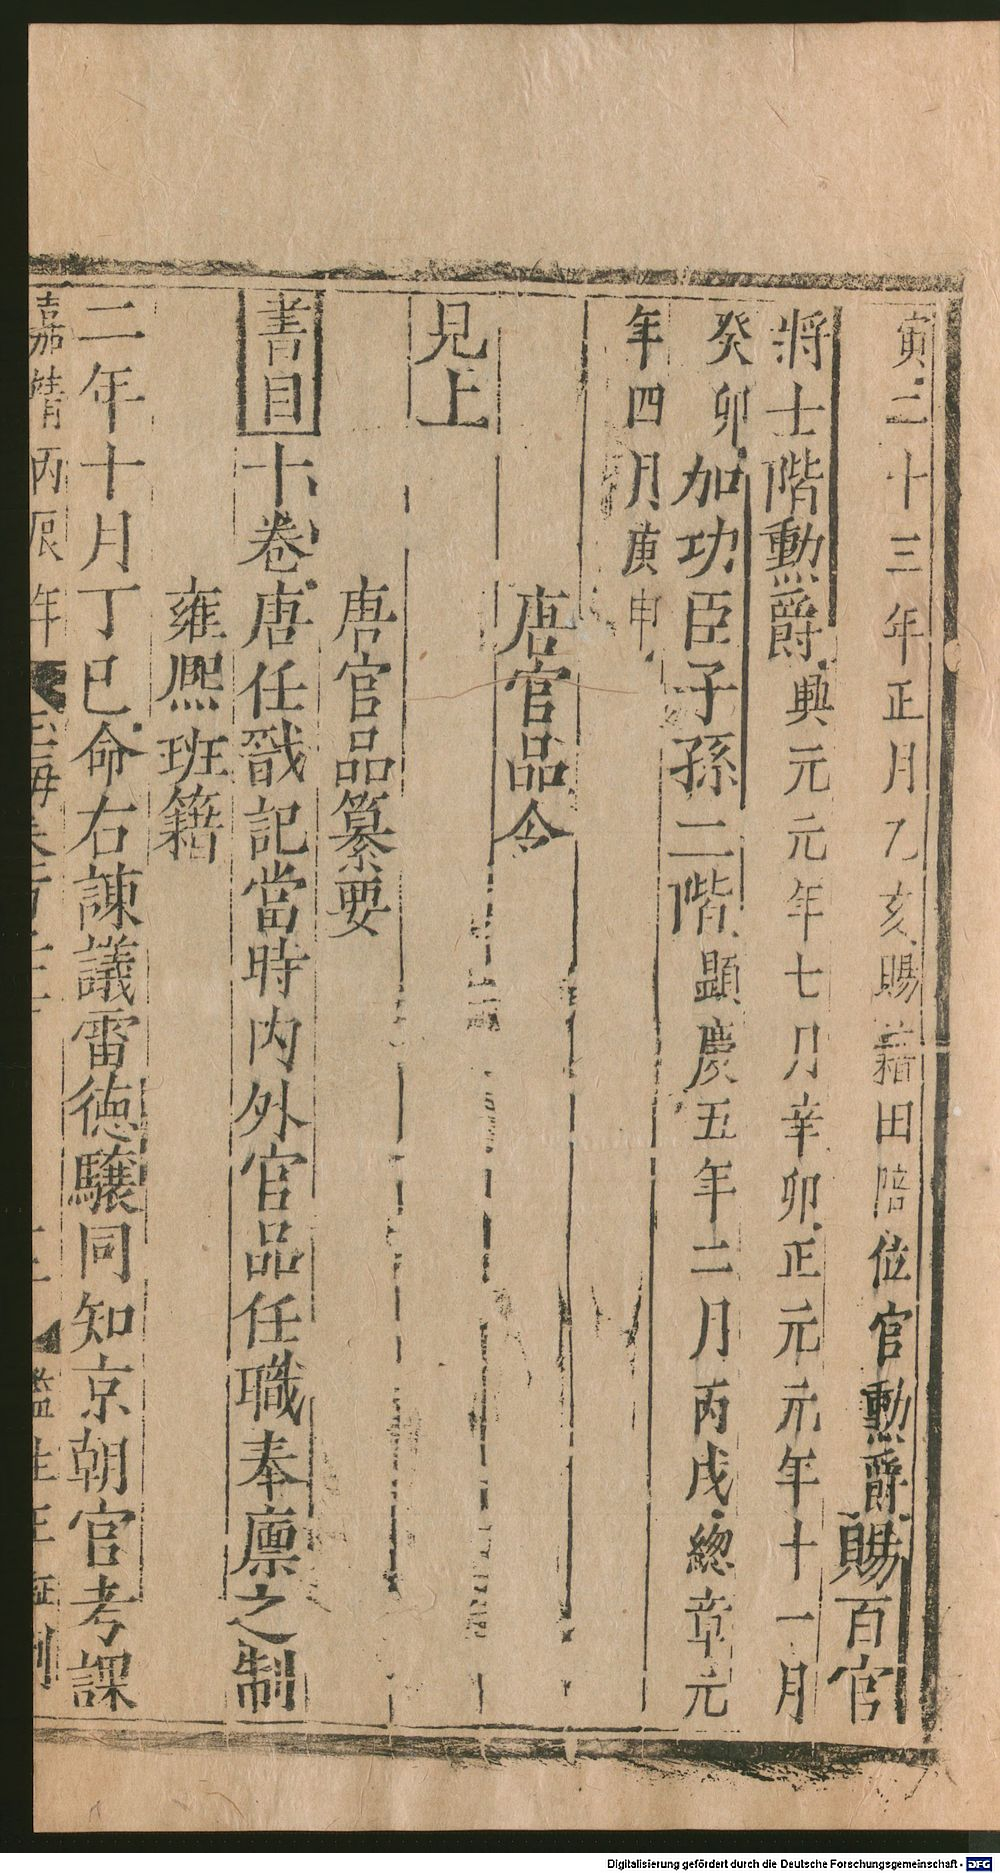 寅二十三年正月乙亥賜藉田陪位官勲爵賜百官
將士階勲爵興元元年七月辛卯正元元年十一月
癸卯加功臣子孫二階顯慶五年二月丙戌總章元
年四月庚申
唐官品令
見上
唐官品纂要
書目十卷唐任戩記當時内外官品任職奉廪之制
雍熈班籍
二年十月丁巳命右諫議雷徳驤同知京朝官考課
嘉靖丙辰年
監生王
Digitalisierung gefördert durch die Deutsche Forschungsgemeinschaft - DFG